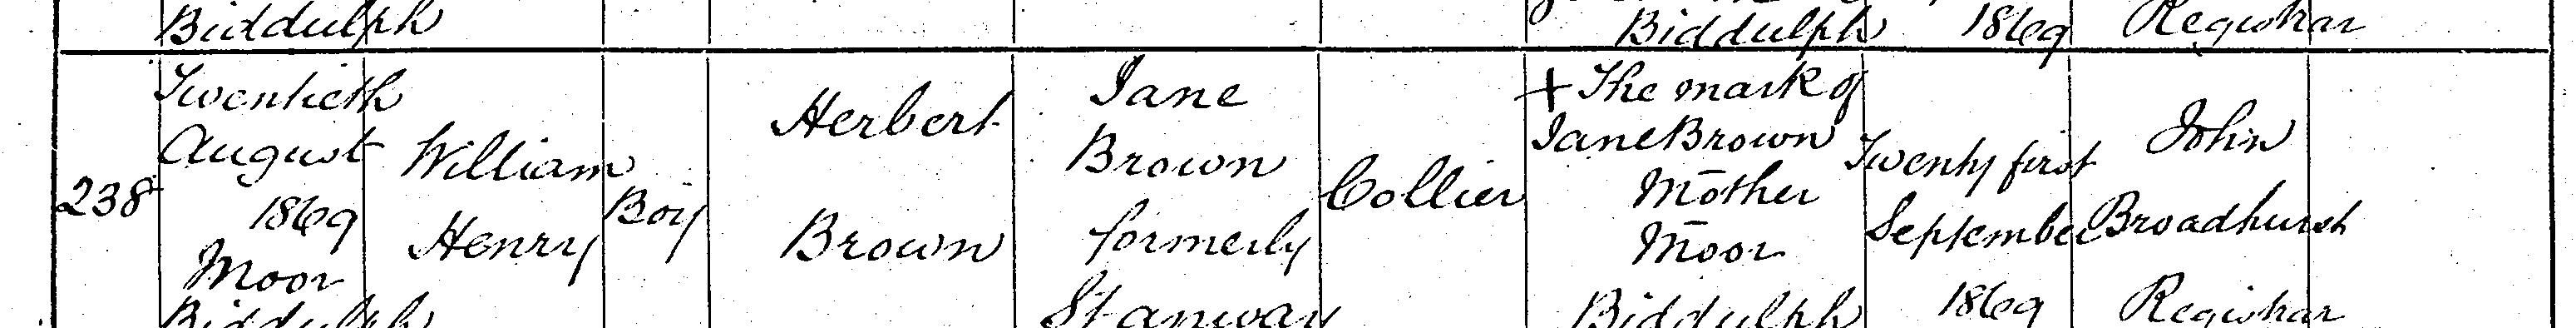 Biddulph
Biddulph
1869
Registrar
238
Twentieth
August
1869
Moor
Biddulph
William
Henry
Boy
Herbert
Brown
Jane
Brown
formerly
Stanway
Collier
+ The mark of
Jane Brown
Mother
Moor
Biddulph
Twenty first
September
1869
John
Broadhurst
Registrar